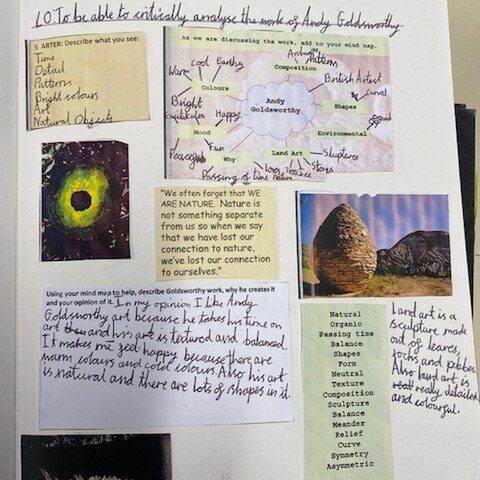 LO. To be able to critically analyse the work of Andy Goldsworthy
STARTER: Describe what you see:
Time
Detail
Patterns
Bright colours
Art
Natural Objects
As we are discussing the work, add to your mind map.
cool
Earthy
Warm
Colours
Patterns
Composition
British Artist
Andy
Goldsworthy
Shapes
Curved
Bright
Happy
Mood
Fun
Peaceful
Environmental
Land Art
Sculptures
Stones
Why
Passing of time
Nature
"We often forget that WE
ARE NATURE. Nature is
not something separate
from us so when we say
that we have lost our
connection to nature,
we've lost our connection
to ourselves."
Using your mind map to help, describe Goldsworthy work, why he creates it
and your opinion of it. In my opinion I like Andy
Goldsworthy art because he takes his time on
art and his art is textured and balanced.
It makes me feel happy because there are
warm colours and cold colours. Also his art
is natural and there are lots of shapes in it.
Natural
Organic
Passing time
Balance
Shapes
Form
Neutral
Texture
Composition
Sculpture
Balance
Meander
Relief
Curve
Symmetry
Asymmetric
Land art is a
sculpture made
out of leaves,
rocks and pebbles.
Also land art is
really detailed
and colourful.